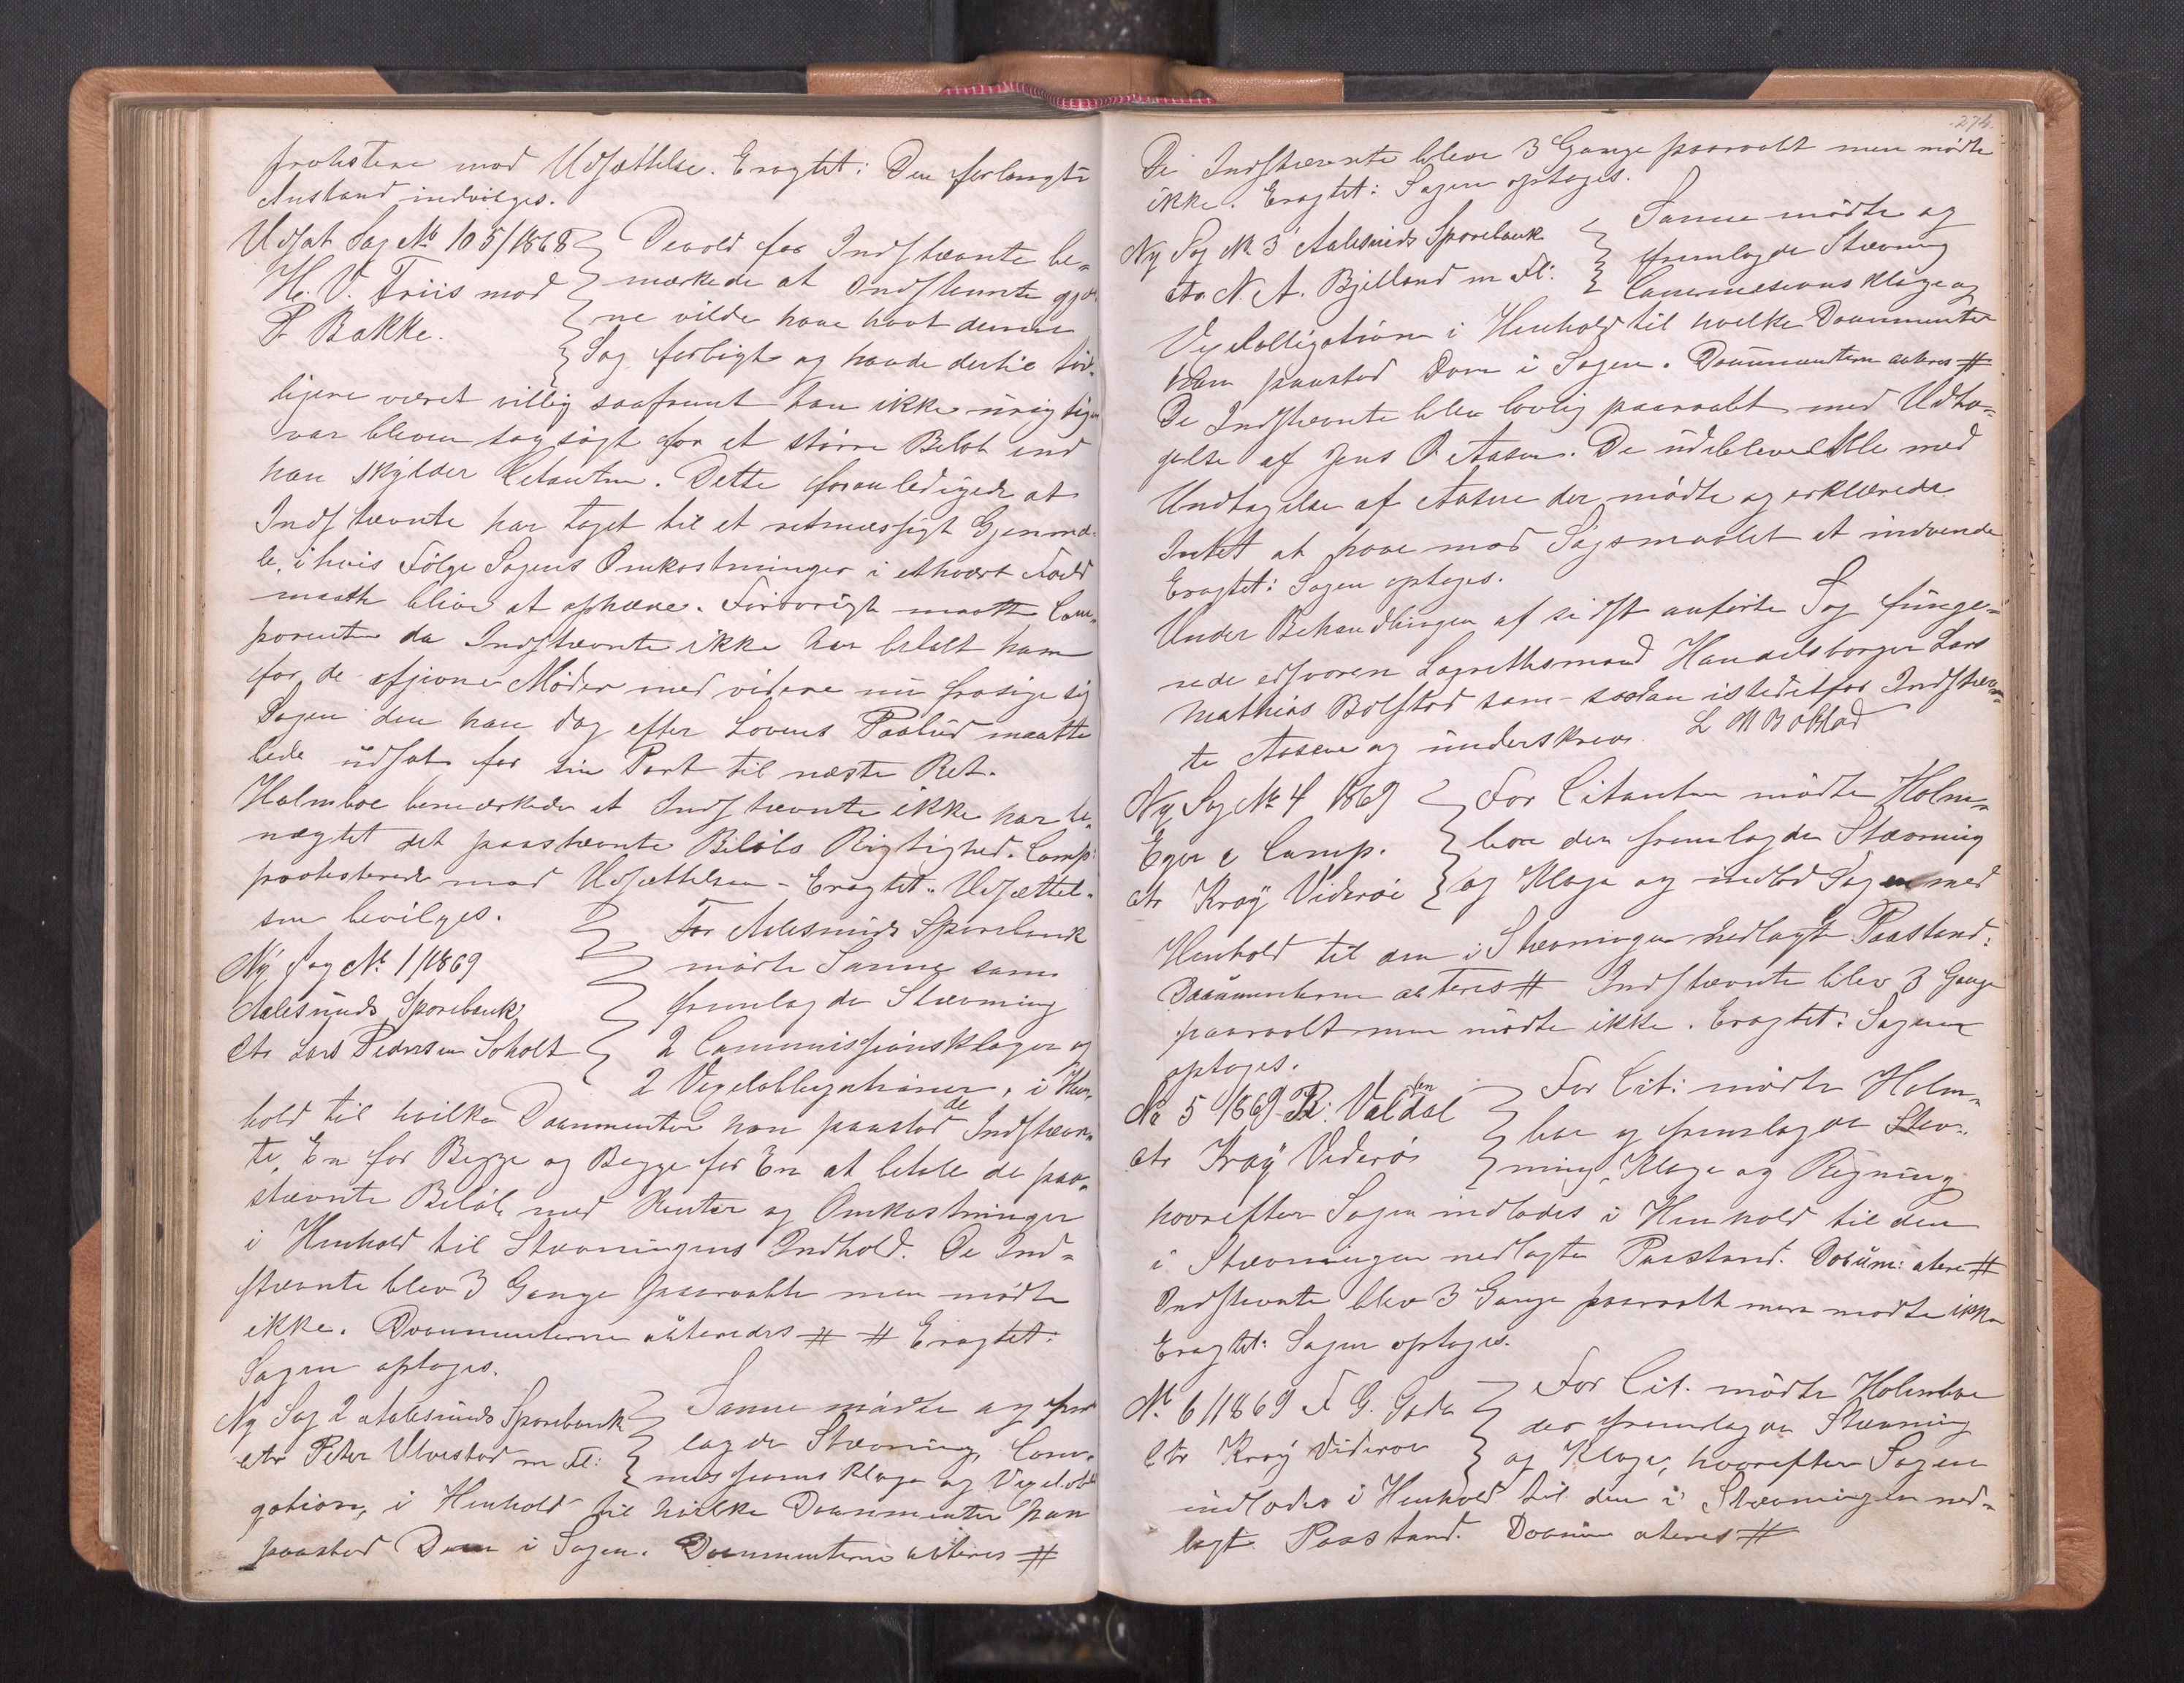 protestere mod Udsættelse. Eragtet: Den forlangte
Anstand indvilges.
Udsat Sag No 105/1868
H. V. Friis mod
P. Bakke.
Devold for Indstævnte be-
mærkede at Indstævnte gjer-
ne vilde have havt denne
Sag forligt og havde dertil tid-
ligere været villig saafremt han ikke urigtigen
var bleven sagsøgt for et større Beløb end
han skylder Citanten. Dette foranledigede at
Indstævnte har taget til et retmæssigt Gjenmæ-
le, i hvis Følge Sagens Omkostninger i ethvert Fald
maatte blive at ophæve. Forøvrigt maatte Com-
parenten da Indstævnte ikke har betalt ham
for de afgivne Møder med videre nu frasige sig
Sagen den han dog efter Lovens Paabud maatte
bede udsat for sin Part til næste Ret.
Holmboe bemærkede at Indstævnte ikke har be-
nægtet det paastævnte Beløbs Rigtighed. Comp:
protesterede mod Udsættelsen - Eragtet: Udsættel-
sen bevilges.
Ny Sag No 1/1869
Aalesunds Sparebank
ctr Lars Pedersen Soholt
For Aalesunds Sparebank
mødte Sanne som
fremlagde Stævning
2 Commissionsklager og
2 Vexelobligationer, i Hen-
hold til hvilke Documenter han paastod de Indstævn-
te, En for Begge og Begge for En at betale de paa-
stævnte Beløb med Renter og Omkostninger
i Henhold til Stævningens Indhold. De Ind-
stævnte blev 3 Gange paaraabte men mødte
ikke. Documenterne acteredes # # Eragtet:
Sagen optages.
Ny Sag 2 Aalesunds Sparebank
ctr Peter Ulvestad m Fl:
Sanne mødte og frem
lagde Stævning, Com-
missionsklage og Vexelobli
gation, i Henhold til hvilke Documenter han
paastod Dom i Sagen. Documenterne acteres #
274.
De Indstævnte bleve 3 Gange paaraabt men mødte
ikke. Eragtet: Sagen optages.
Ny Sag No 3 Aalesunds Sparebank
ctr N. A. Bjelland m Fl:
Sanne mødte og
fremlagde Stævning
Commissionsklage og
Vexelobligation i Henhold til hvilke Documenter
han paastod Dom i Sagen. Documenterne acteres #
De Indstævnte blev lovlig paaraabt med Undta-
gelse af Jens O Aasen. De udebleve Alle med
Undtagelse af Aasen der mødte og erklærede
Intet at have mod Søgsmaalet at indvende
Eragtet: Sagen optages.
Under Behandlingen af sidst anførte Sag funge-
rede edsvoren Lagrettesmand Handelsborger Lars
Mathias Bolstad som saadan istedetfor Indstævn-
te Aasen og underskrev. L M Bolstad
Ny Sag No 4 1869
Eger & Comp.
ctr Kraÿ Viderøe
For Citanten mødte Holm-
boe der fremlagde Stævning
og Klage og indlod Sagen med
Henhold til den i Stævningen nedlagte Paastand:
Documenterne acteres # Indstævnte blev 3 Gange
paaraabt men mødte ikke. Eragtet: Sagen
optages.
No 5 1869 R. Valdal
ctr Kraÿ Viderøe
For Cit: mødte Holm-
boe og fremlagde Stæv-
ning, Klage og Regning
hvorefter Sagen indlodes i Henhold til den
i Stævningen nedlagte Paastand. Docum: actere #
Indstævnte blev 3 Gange paaraabt men mødte ikke
Eragtet: Sagen optages.
No 6/1869 F G. Gade
ctr Kraÿ Viderøe
For Cit. mødte Holmboe
der fremlagde Stævning
og Klage, hvorefter Sagen
indlodes i Henhold til den i Stævningen ned-
lagte Paastand. Docum acteres #